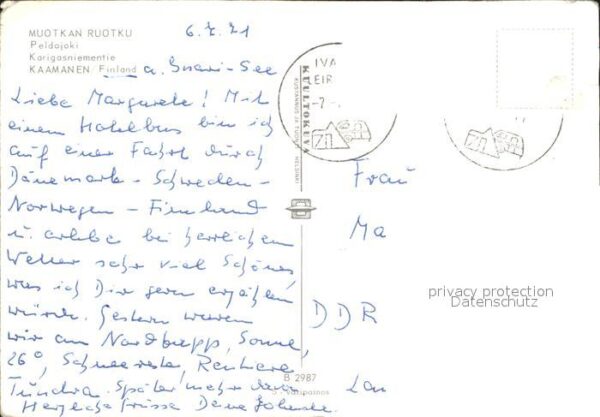 MUOTKAN RUOTKU
Peldojoki
Karigasniementie
KAAMANEN/Finland
6.7.71
a. Inari-See
Liebe Margarete! Mit
einem Hotelbus bin ich
auf einer Fahrt durch
Dänemark - Schweden -
Norwegen - Finnland
u. erlebe bei herrlichem
Wetter sehr viel Schönes,
was ich Dir gern erzählen
würde. Gestern waren
wir am Nordkapp, Sonne,
26°, Schneereste, Rentiere,
Tundra. Später mehr davon
Herzliche Grüsse Deine
IVA
EIR
-7.-
KUULTOKUVA
KUSTANNUS JA TUOTE HELSINKI
Frau
Ma
privacy protection
Datenschutz
DDR
B 2987